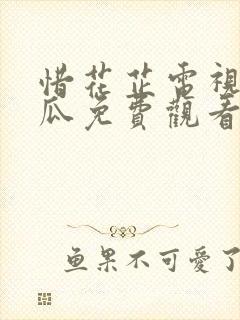 惜花芷電視
瓜免費觀看
鱼果不可愛了